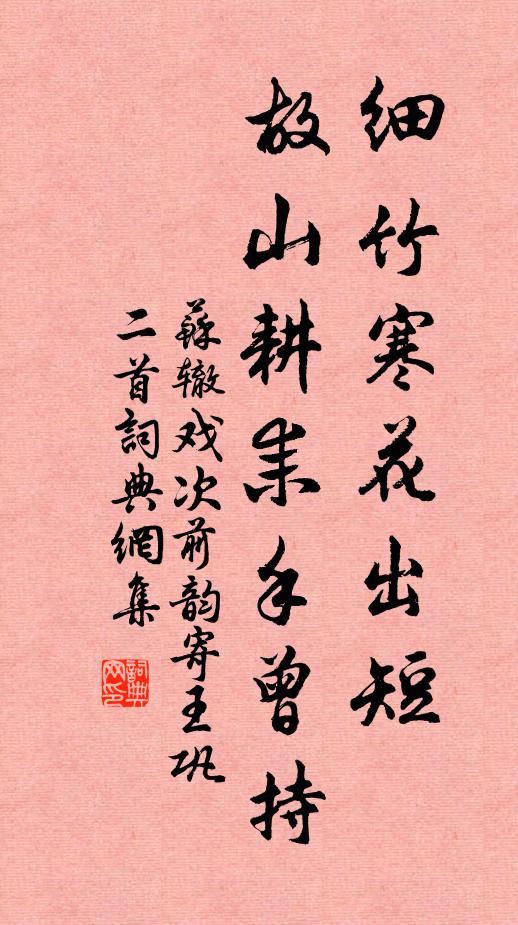 细竹寒花出短
故山耕耒手曾持
蘇辙戏次前韵寄王巩
二首詞典網集
詞典网印